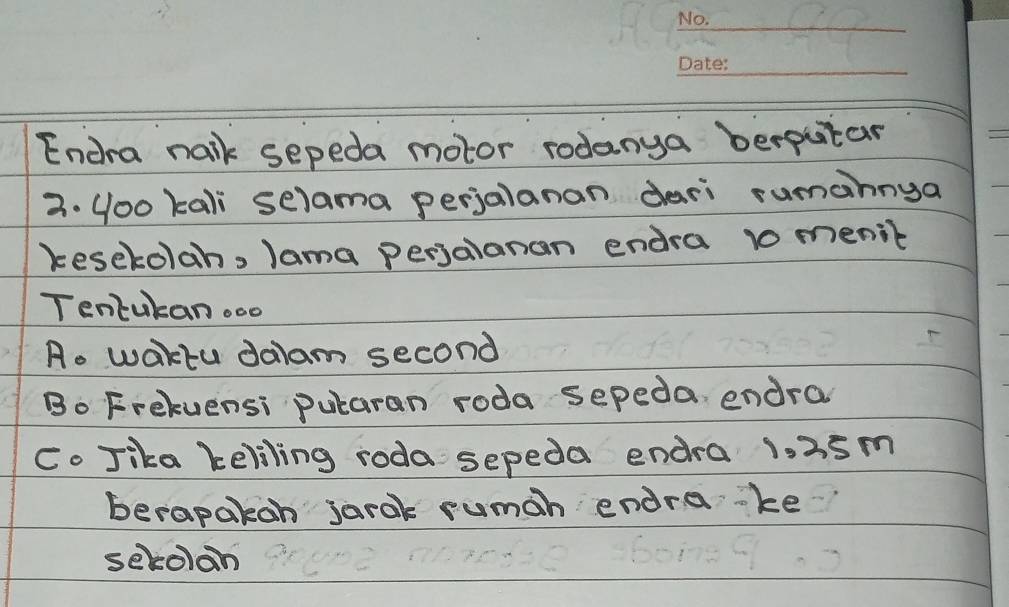 No.
Date:
Endra naik sepeda motor rodanya berputar
2.400 kali selama perjalanan dari rumahnya
kesekolah, lama perjalanan endra 10 menit
Tentukan...
A. waktu dalam second
B. Frekuensi putaran roda sepeda endra
C. Jika keliling roda sepeda endra 1,25 m
berapakah jarak rumah endra ke
sekolah